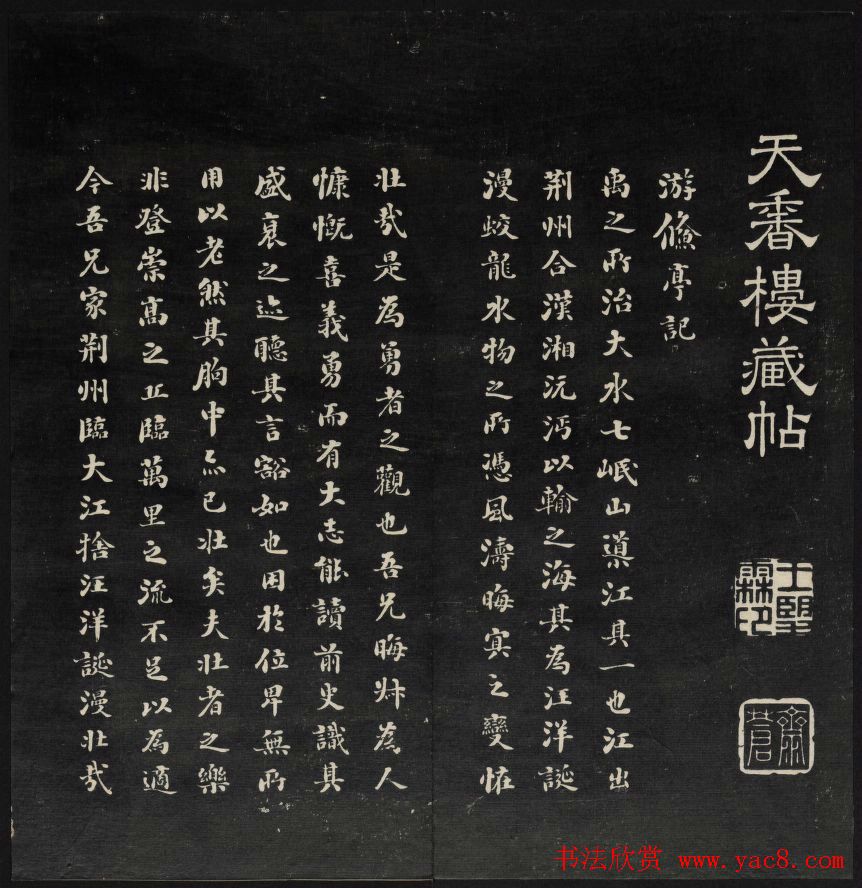 天香樓藏帖
王朢霖印
游鯈亭記
禹之所治大水七岷山導江其一也江出
荆州合漢湘沅沔以輸之海其為汪洋誕
漫蛟龍水物之所憑風濤晦冥之變恠
壯哉是為勇者之觀也吾兄晦叔為人
慷慨喜義勇而有大志能讀前史識其
盛衰之迹聽其言豁如也困於位卑無所
用以老然其胸中亦已壯矣夫壯者之樂
非登崇高之丘臨萬里之流不足以為適
今吾兄家荆州臨大江捨汪洋誕漫壯哉
书法欣赏 www.yac8.com